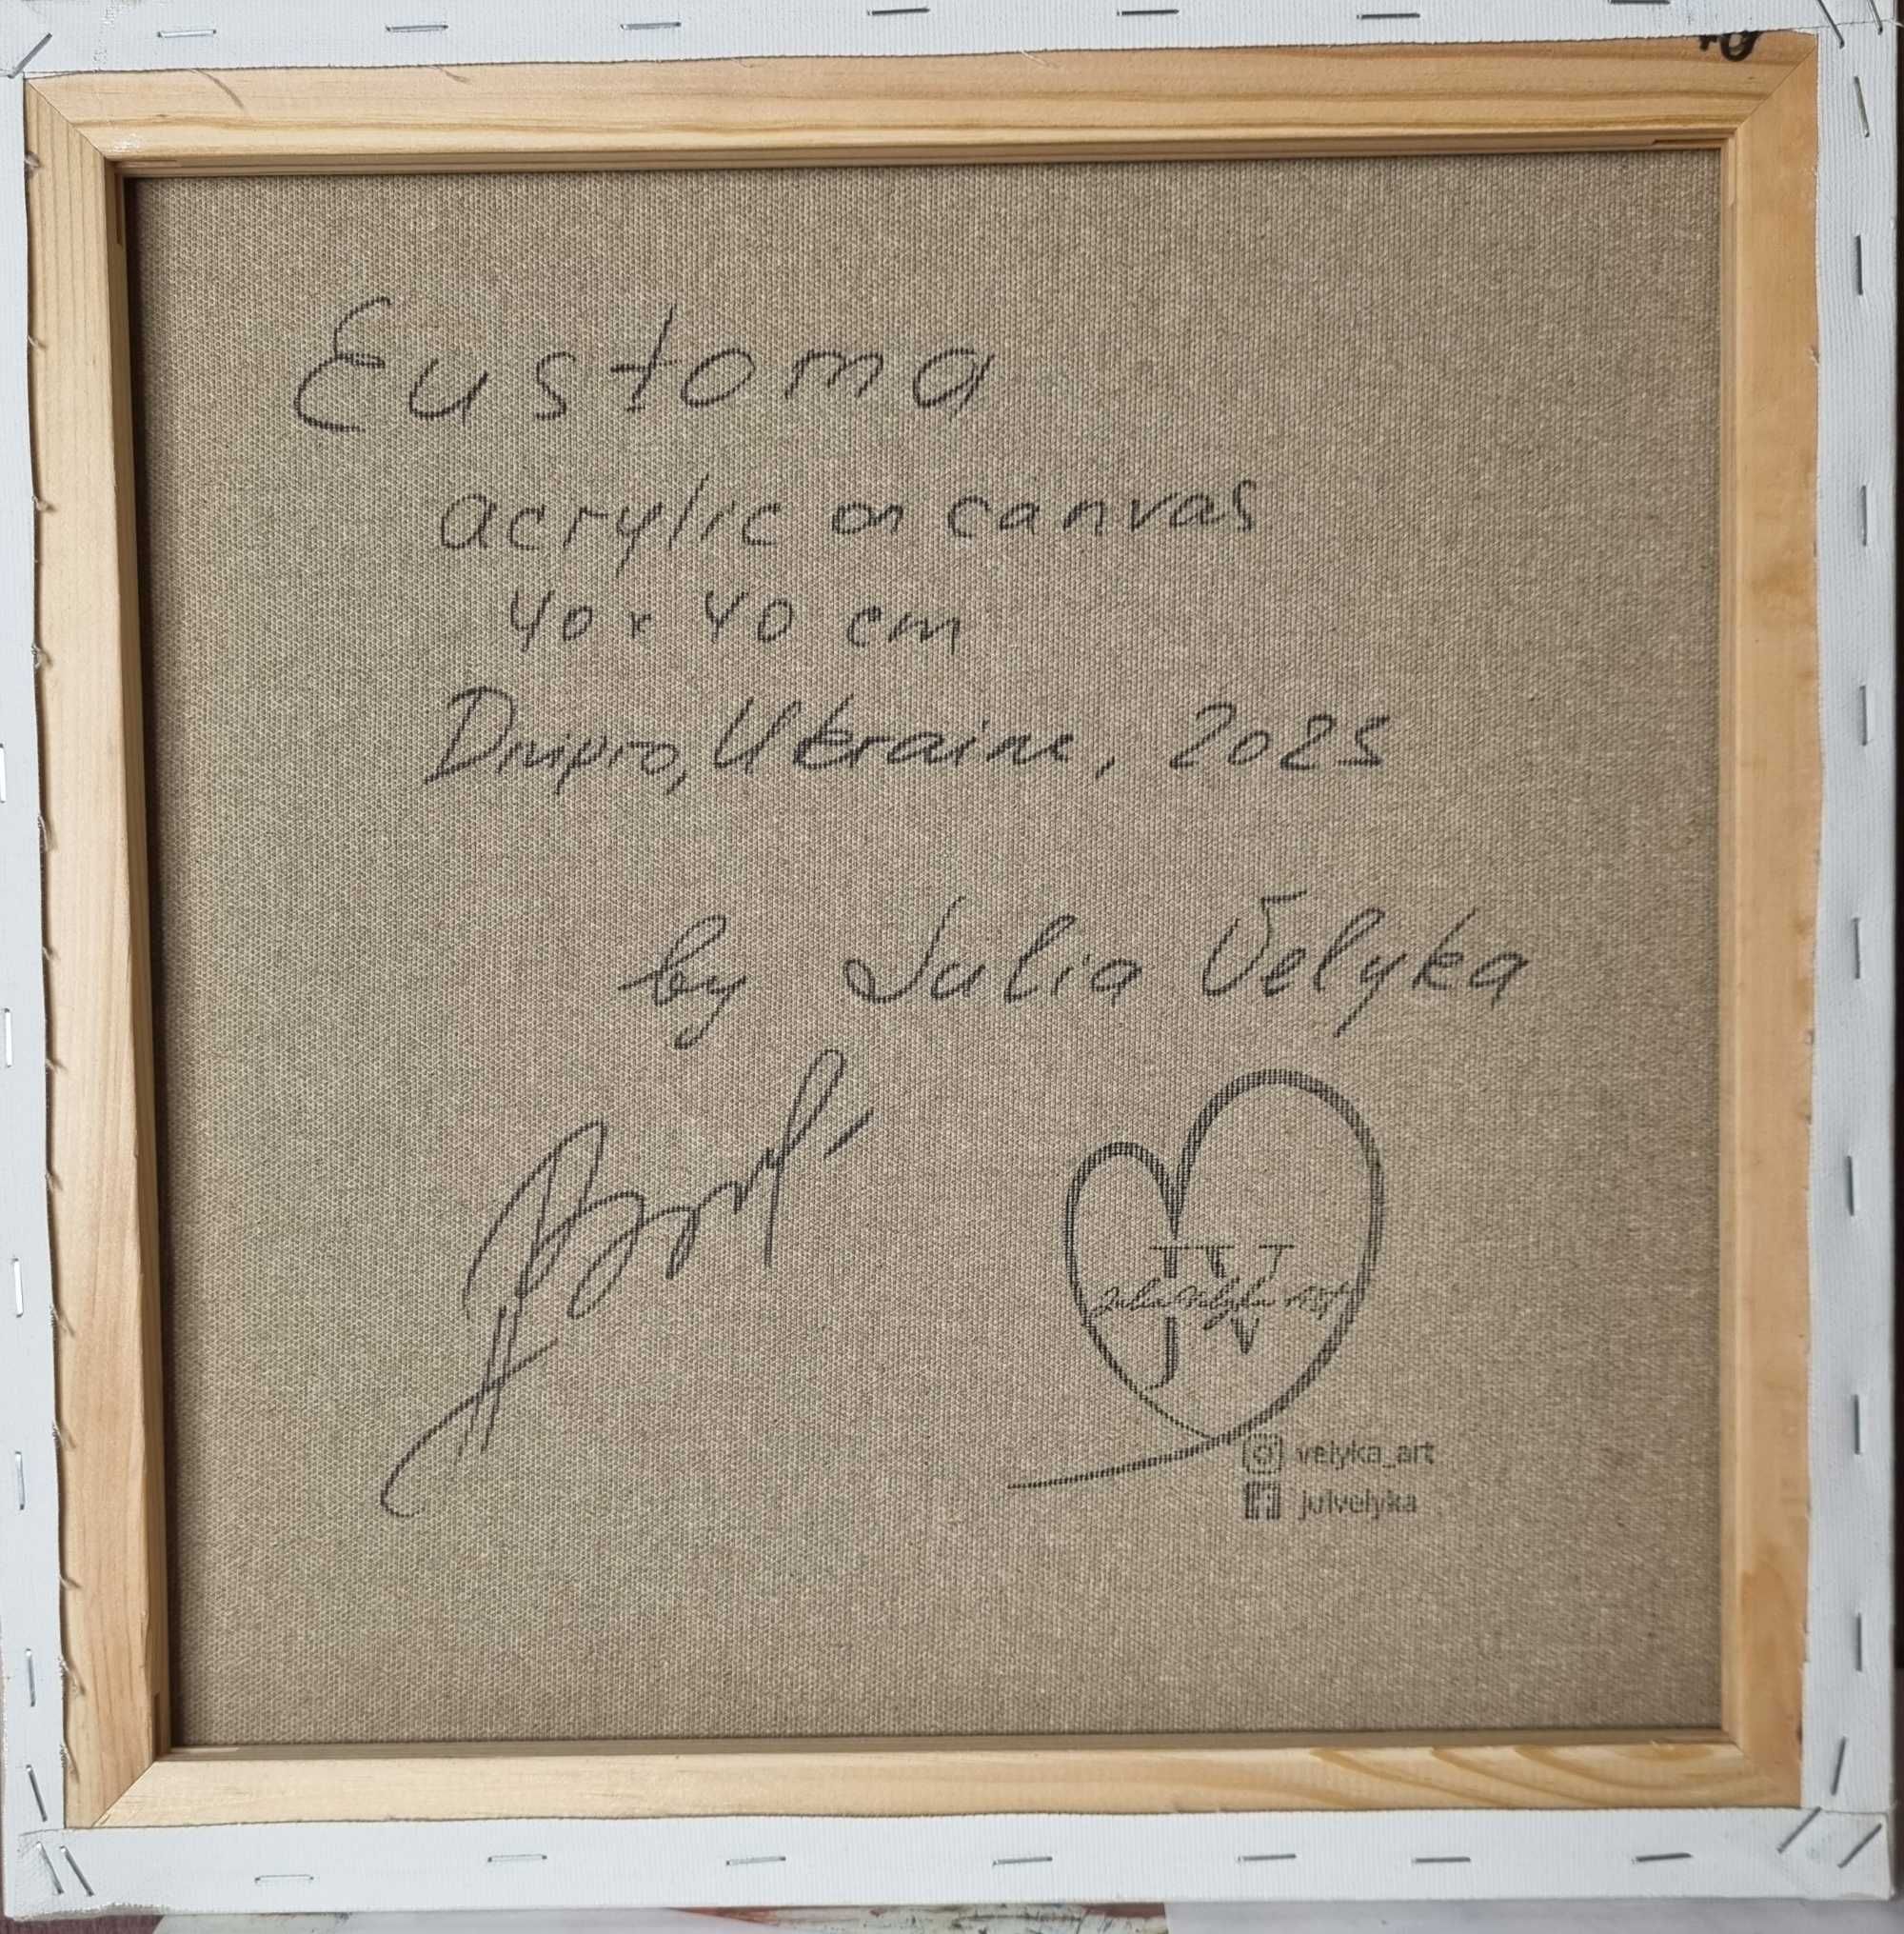 Eustoma
acrylic on canvas
40 x 40 cm
Dnipro, Ukraine, 2025
by Julia Velyka
Julia Velyka Art
J V
velyka_art
julvelyka